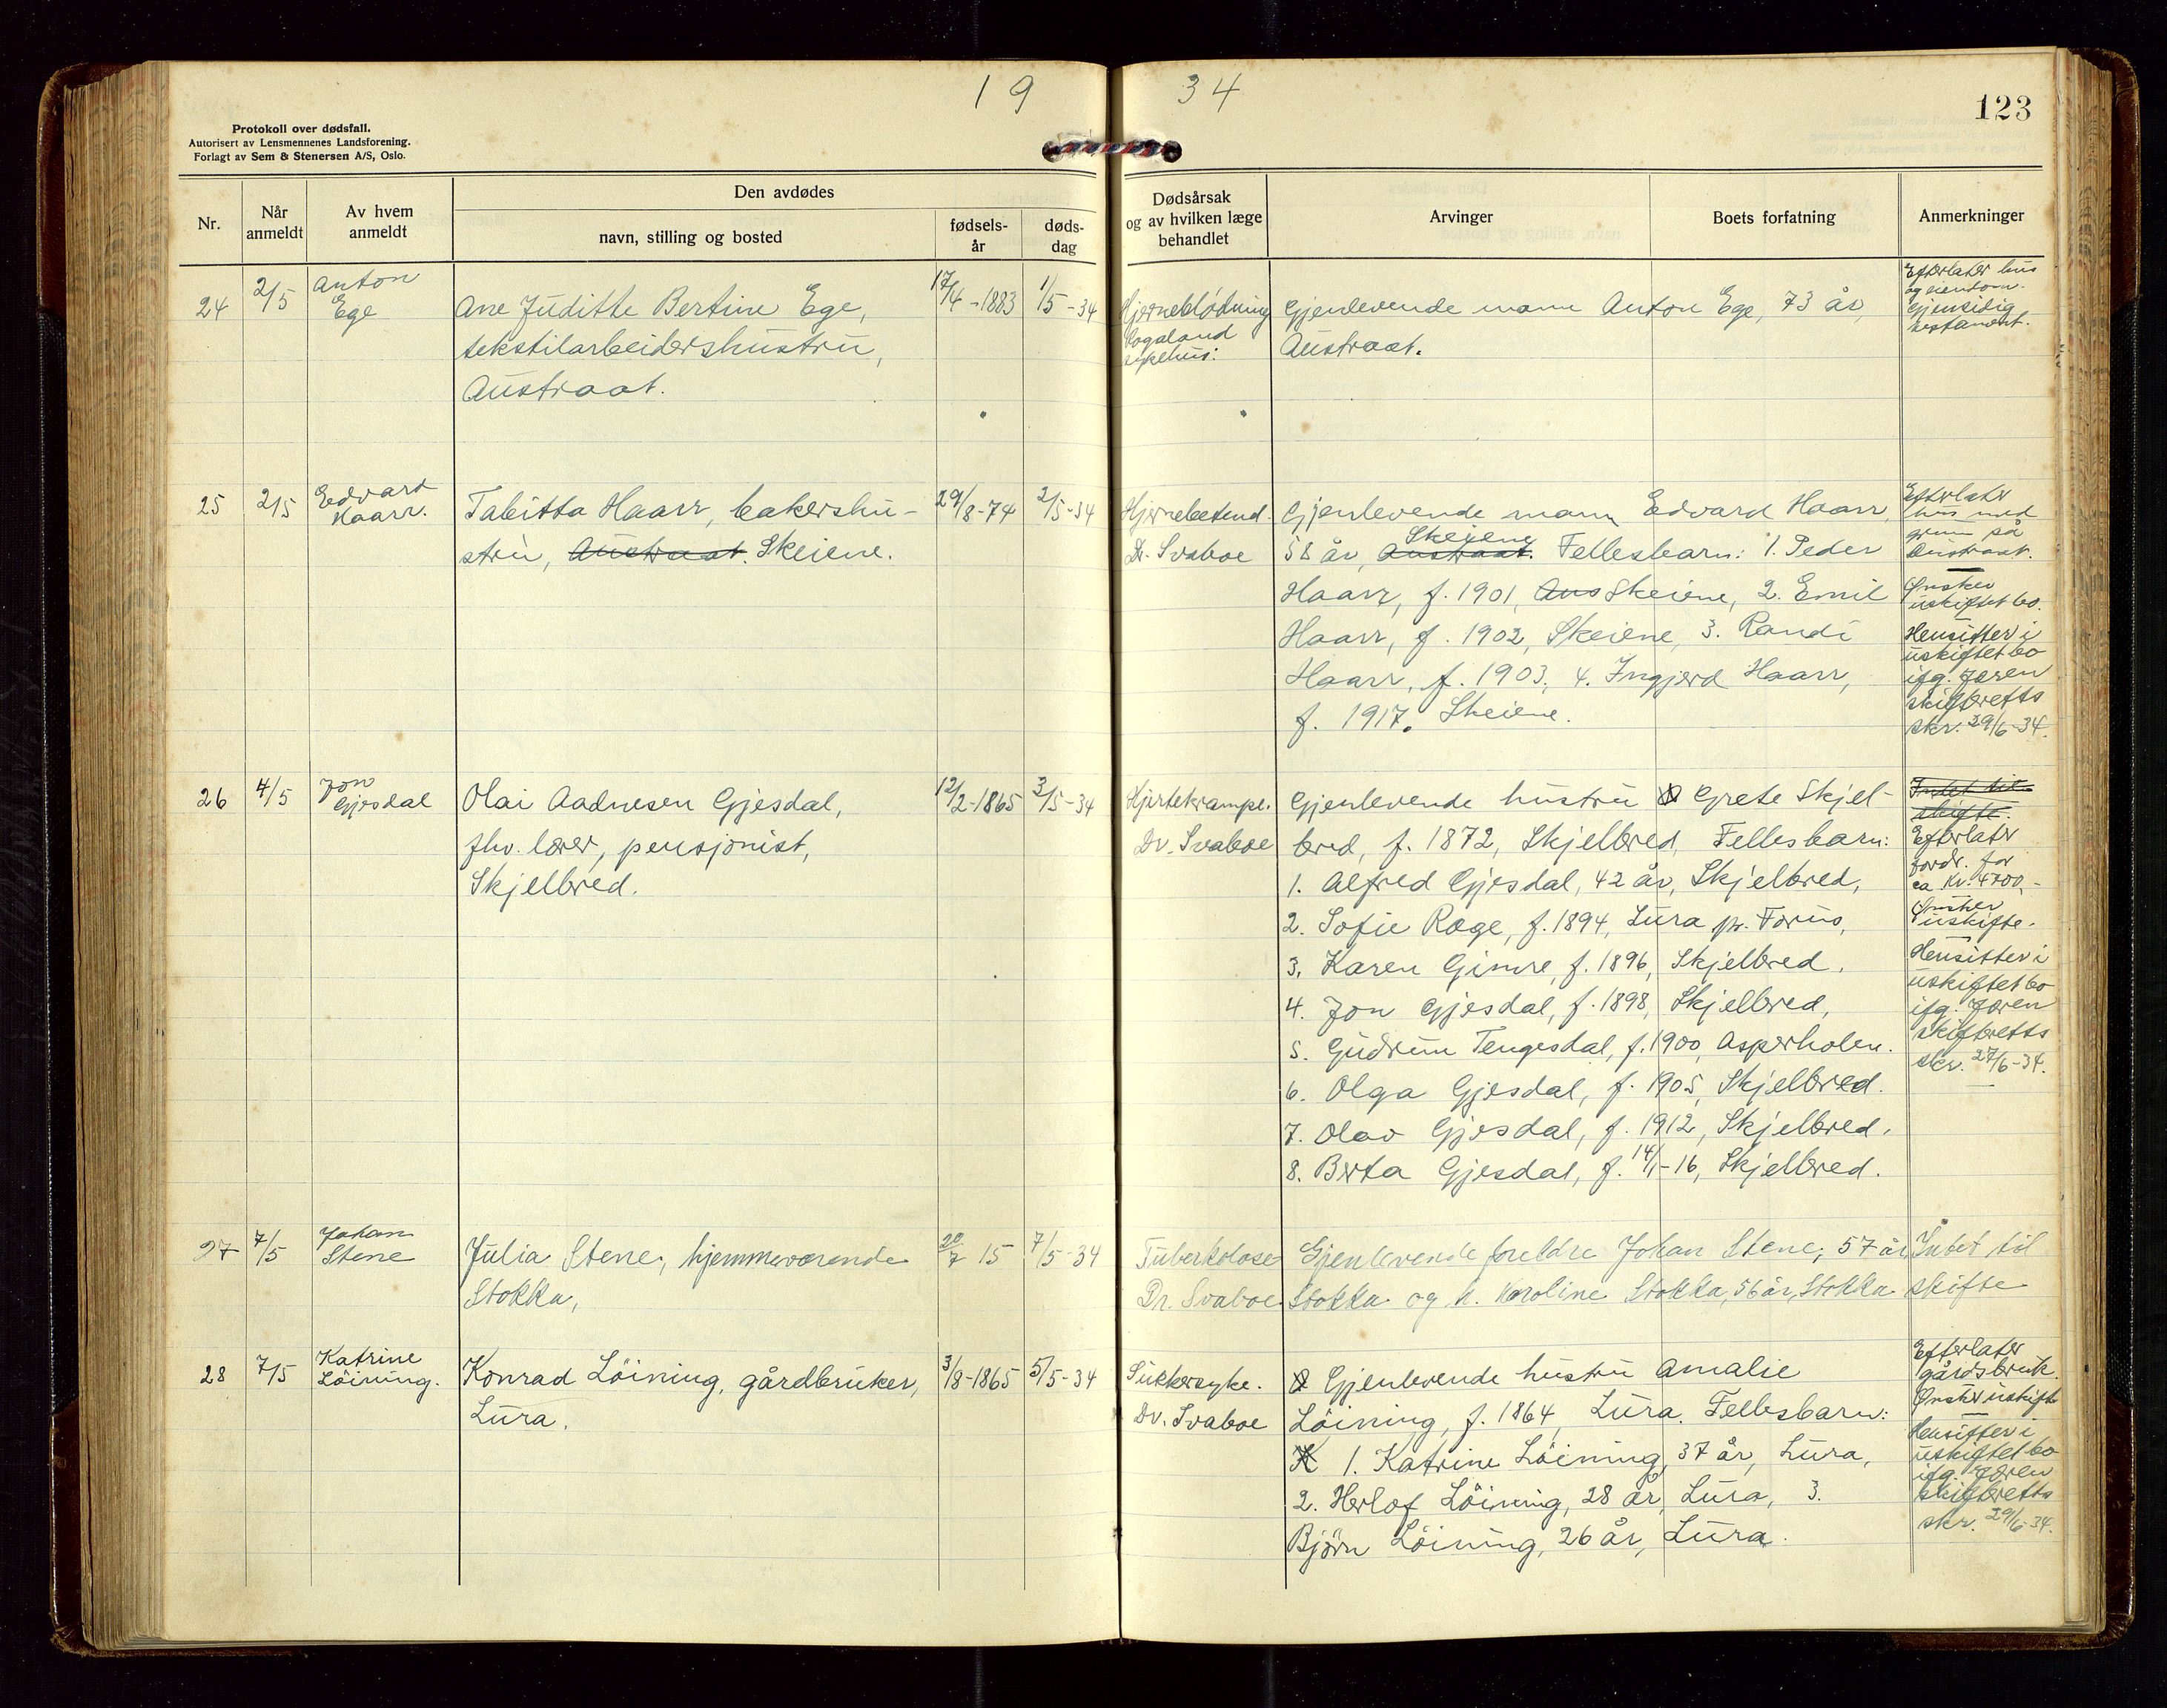 19 34
123
Protokoll over dødsfall.
Autorisert av Lensmennenes Landsforening.
Forlagt av Sem & Stenersen A/S, Oslo.
Nr.
Når
anmeldt
Av hvem
anmeldt
Den avdødes
navn, stilling og bosted
fødsels-
år
døds-
dag
Dødsårsak
og av hvilken læge
behandlet
Arvinger
Boets forfatning
Anmerkninger
24
2/5
Anton
Ege
Ane Juditte Bertine Ege,
tekstilarbeidershustru,
Austraat.
17/4-1883
1/5-34
Hjerneblødning
Rogaland
sykehus.
Gjenlevende mann Anton Ege, 73 år,
Austraat.
Efterlater hus
og eiendom.
Gjensidig
testament.
25
2/5
Edvard
Haarr.
Tabitta Haarr, bakershu-
stru, Austraat. Skeiene.
29/8-74
2/5-34
Hjernebetend.
Dr. Svaboe
Gjenlevende mann Edvard Haarr,
Skeiene
58 år, Austraat. Fellesbarn: 1. Peder
Haarr, f. 1901, Aus Skeiene, 2. Emil
Haarr, f. 1902, Skeiene, 3. Randi
Haarr, f. 1903, 4. Ingjerd Haarr,
f. 1917. Skeiene.
Efterlater
hus med
grunn på
Austraat.
Ønsker
uskiftet bo.
Hensitter i
uskiftet bo
ifg. Jæren
skifteretts
skr. 29/6-34.
26
4/5
Jon
Gjesdal
Olai Aadnesen Gjesdal,
fhv. lærer, pensjonist,
Skjelbred.
12/2-1865
3/5-34
Hjertekrampe.
Dr. Svaboe
Gjenlevende hustru Grete Skjel-
bred, f. 1872, Skjelbred, Fellesbarn:
1. Alfred Gjesdal, 42 år, Skjelbred,
2. Sofie Rage, f. 1894, Lura pr. Forus,
3. Karen Gimre, f. 1896, Skjelbred.
4. Jon Gjesdal, f. 1898, Skjelbred,
5. Gudrun Tengesdal, f. 1900, Asperholen.
6. Olga Gjesdal, f. 1905, Skjelbred.
7. Olav Gjesdal, f. 1912, Skjelbred.
8. Berta Gjesdal, f. 14/1-16, Skjelbred.
Intet til
skifte.
Efterlater
fordr. for
ca. Kr. 4700,-
Ønsker
uskifte.
Hensitter i
uskiftet bo
ifg. Jæren
skifteretts
skr. 27/6-34.
27
7/5
Johan
Stene
Julia Stene, hjemmeværende
Stokka,
20/7 15
7/5-34
Tuberkolose
Dr. Svaboe
Gjenlevende foreldre Johan Stene, 57 år,
Stokka og h. Karoline Stokka, 56 år, Stokka
Intet til
skifte
28
7/5
Katrine
Löining.
Konrad Löining, gårdbruker,
Lura.
3/8-1865
5/5-34
Sukkersyke.
Dr. Svaboe
Gjenlevende hustru Amalie
Löining, f. 1864, Lura. Fellesbarn:
K 1. Katrine Löining, 37 år, Lura,
2. Herlof Löining, 28 år, Lura, 3.
Björn Löining, 26 år, Lura.
Efterlater
gårdsbruk.
Ønsker uskifte
Hensitter i
uskiftet bo
ifg. Jæren
skifteretts
skr. 29/6-34.